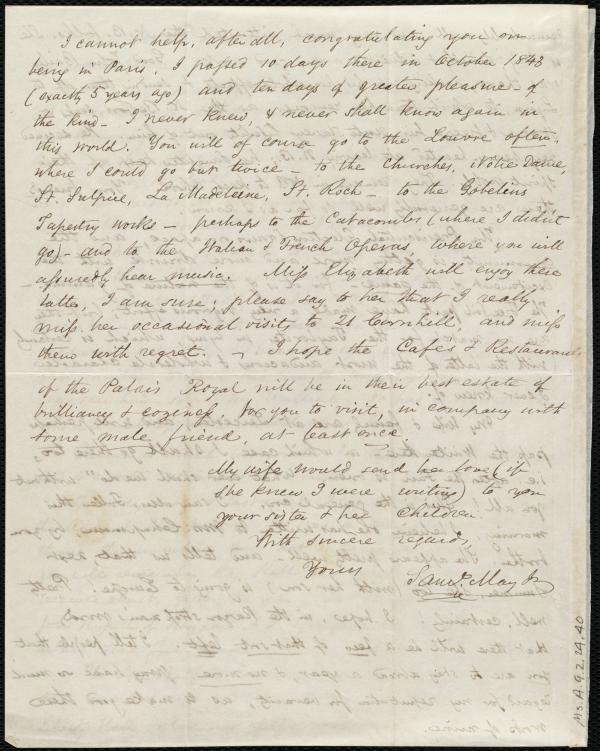 I cannot help, after all, congratulating you on
being in Paris. I passed 10 days there in October 1843
(exactly 5 years ago) and ten days of greater pleasure - of
the kind - I never knew, & never shall know again in
this world. You will of course go to the Louvre often,
where I could go but twice - to the Churches, Notre Dame,
St. Sulpice, La Madeleine, St. Roch - to the Gobelins
Tapestry works - perhaps to the Catacombs (where I didn't
go) - and to the Italian & French Operas, where you will
assuredly hear music. Miss Elizabeth will enjoy these
latter, I am sure; please say to her that I really
miss her occasional visits to 21 Cornhill, and miss
them with regret. - I hope the Cafés & Restaurants
of the Palais Royal will be in their best estate of
brilliancy & coziness, for you to visit, in company with
some male friend, at least once.
My wife would send her love (if
she knew I were writing) to you
your sister & her children.
With sincere regards,
Yours
Saml. May Jr
Ms. A. 9. 2. 24. 40